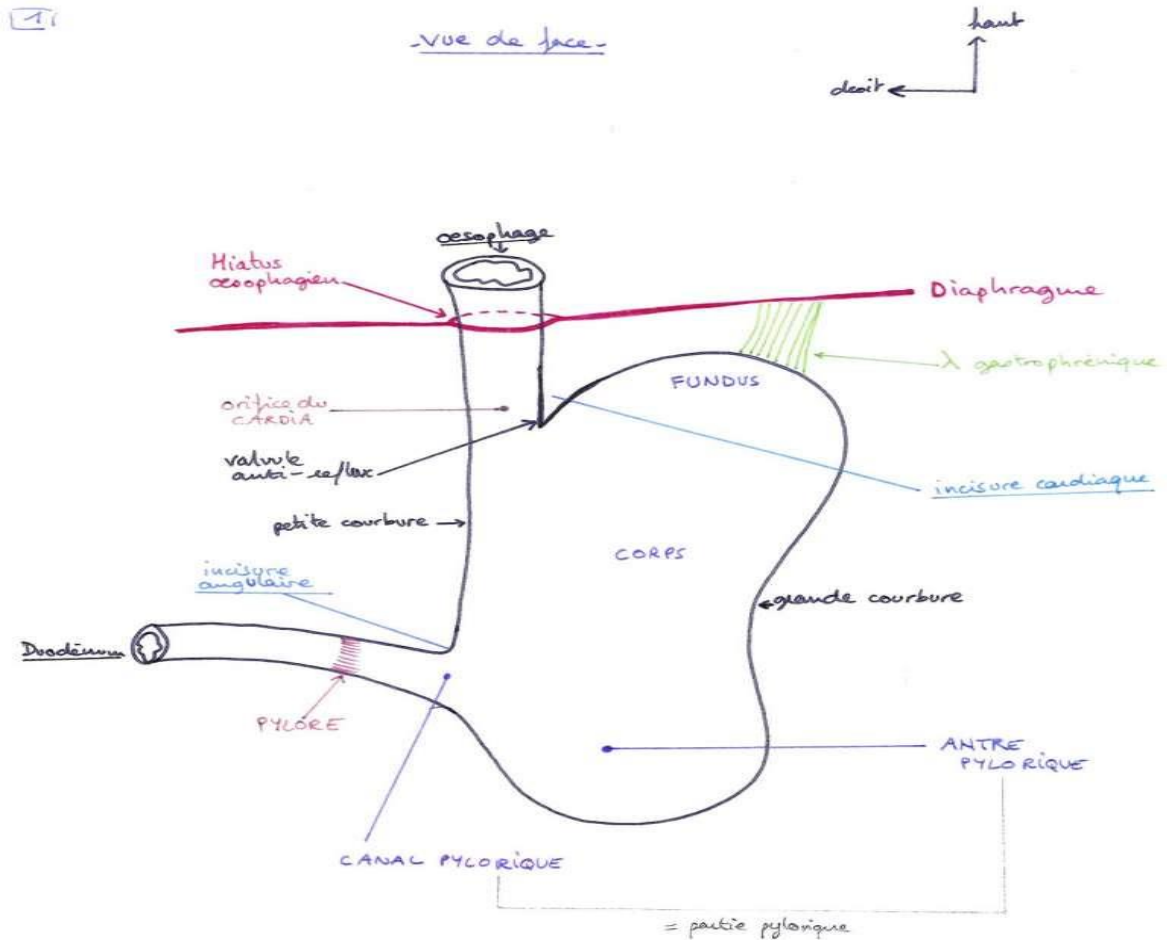 1
-Vue de face-
haut
droit
oesophage
Hiatus
oesophagien
Diaphragme
λ gastrophrénique
FUNDUS
orifice du
CARDIA
valvule
anti-reflux
incisure cardiaque
petite courbure
CORPS
incisure
angulaire
grande courbure
Duodénum
PYLORE
ANTRE
PYLORIQUE
CANAL PYLORIQUE
= partie pylorique